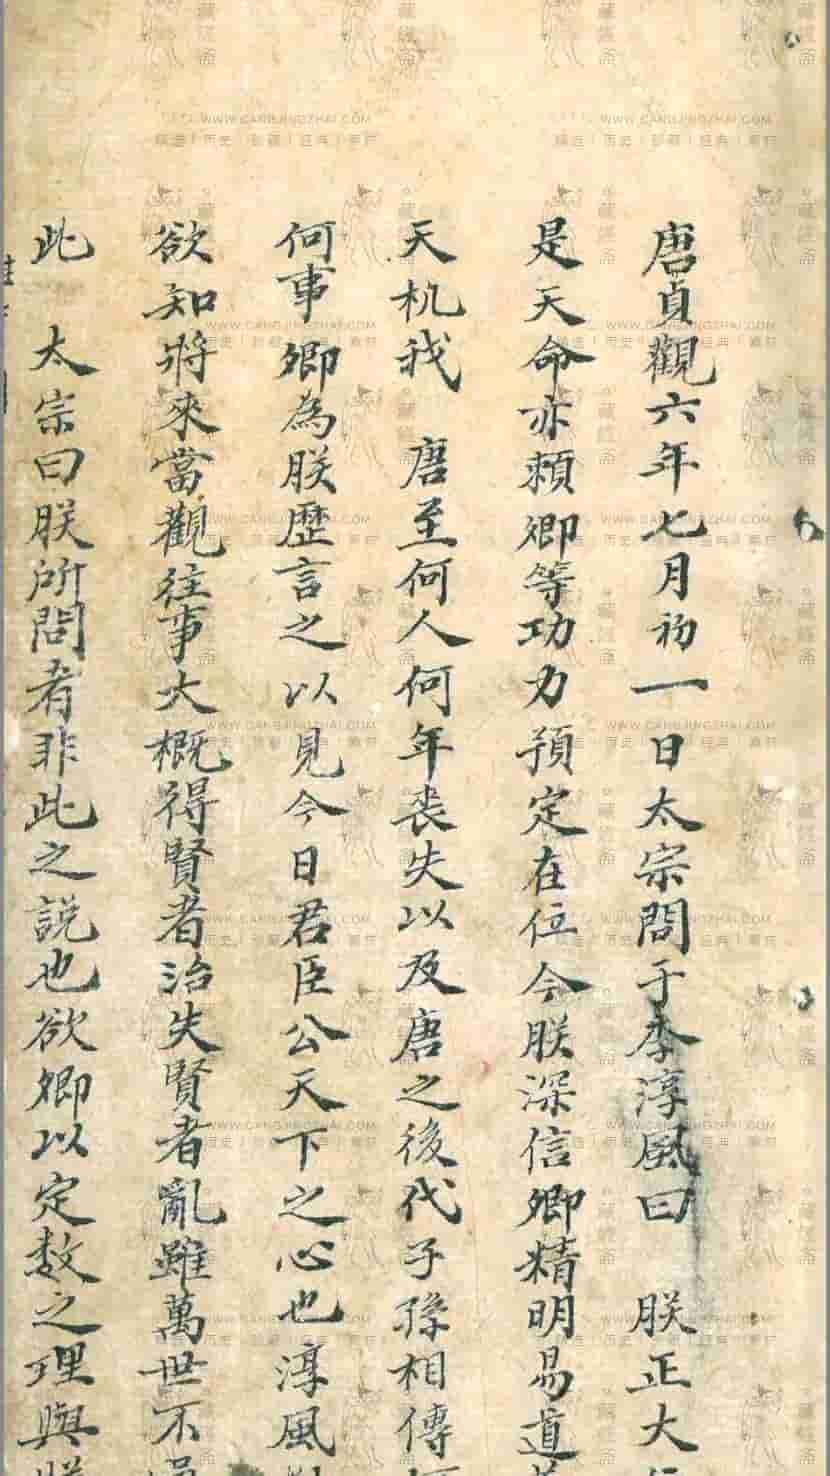 唐貞觀六年七月初一日太宗問于李淳風曰 朕正大
是天命亦賴卿等功力預定在位今朕深信卿精明易道
天机我 唐至何人何年丧失以及唐之後代子孫相傳
何事卿為朕歷言之以見今日君臣公天下之心也淳風
欲知將來當觀往事大概得賢者治失賢者亂雖萬世不
此 太宗曰朕所問者非此之說也欲卿以定数之理與
WWW.CANGJINGZHAI.COM
精选 | 历史 | 珍藏 | 经典 | 素材
藏經斋